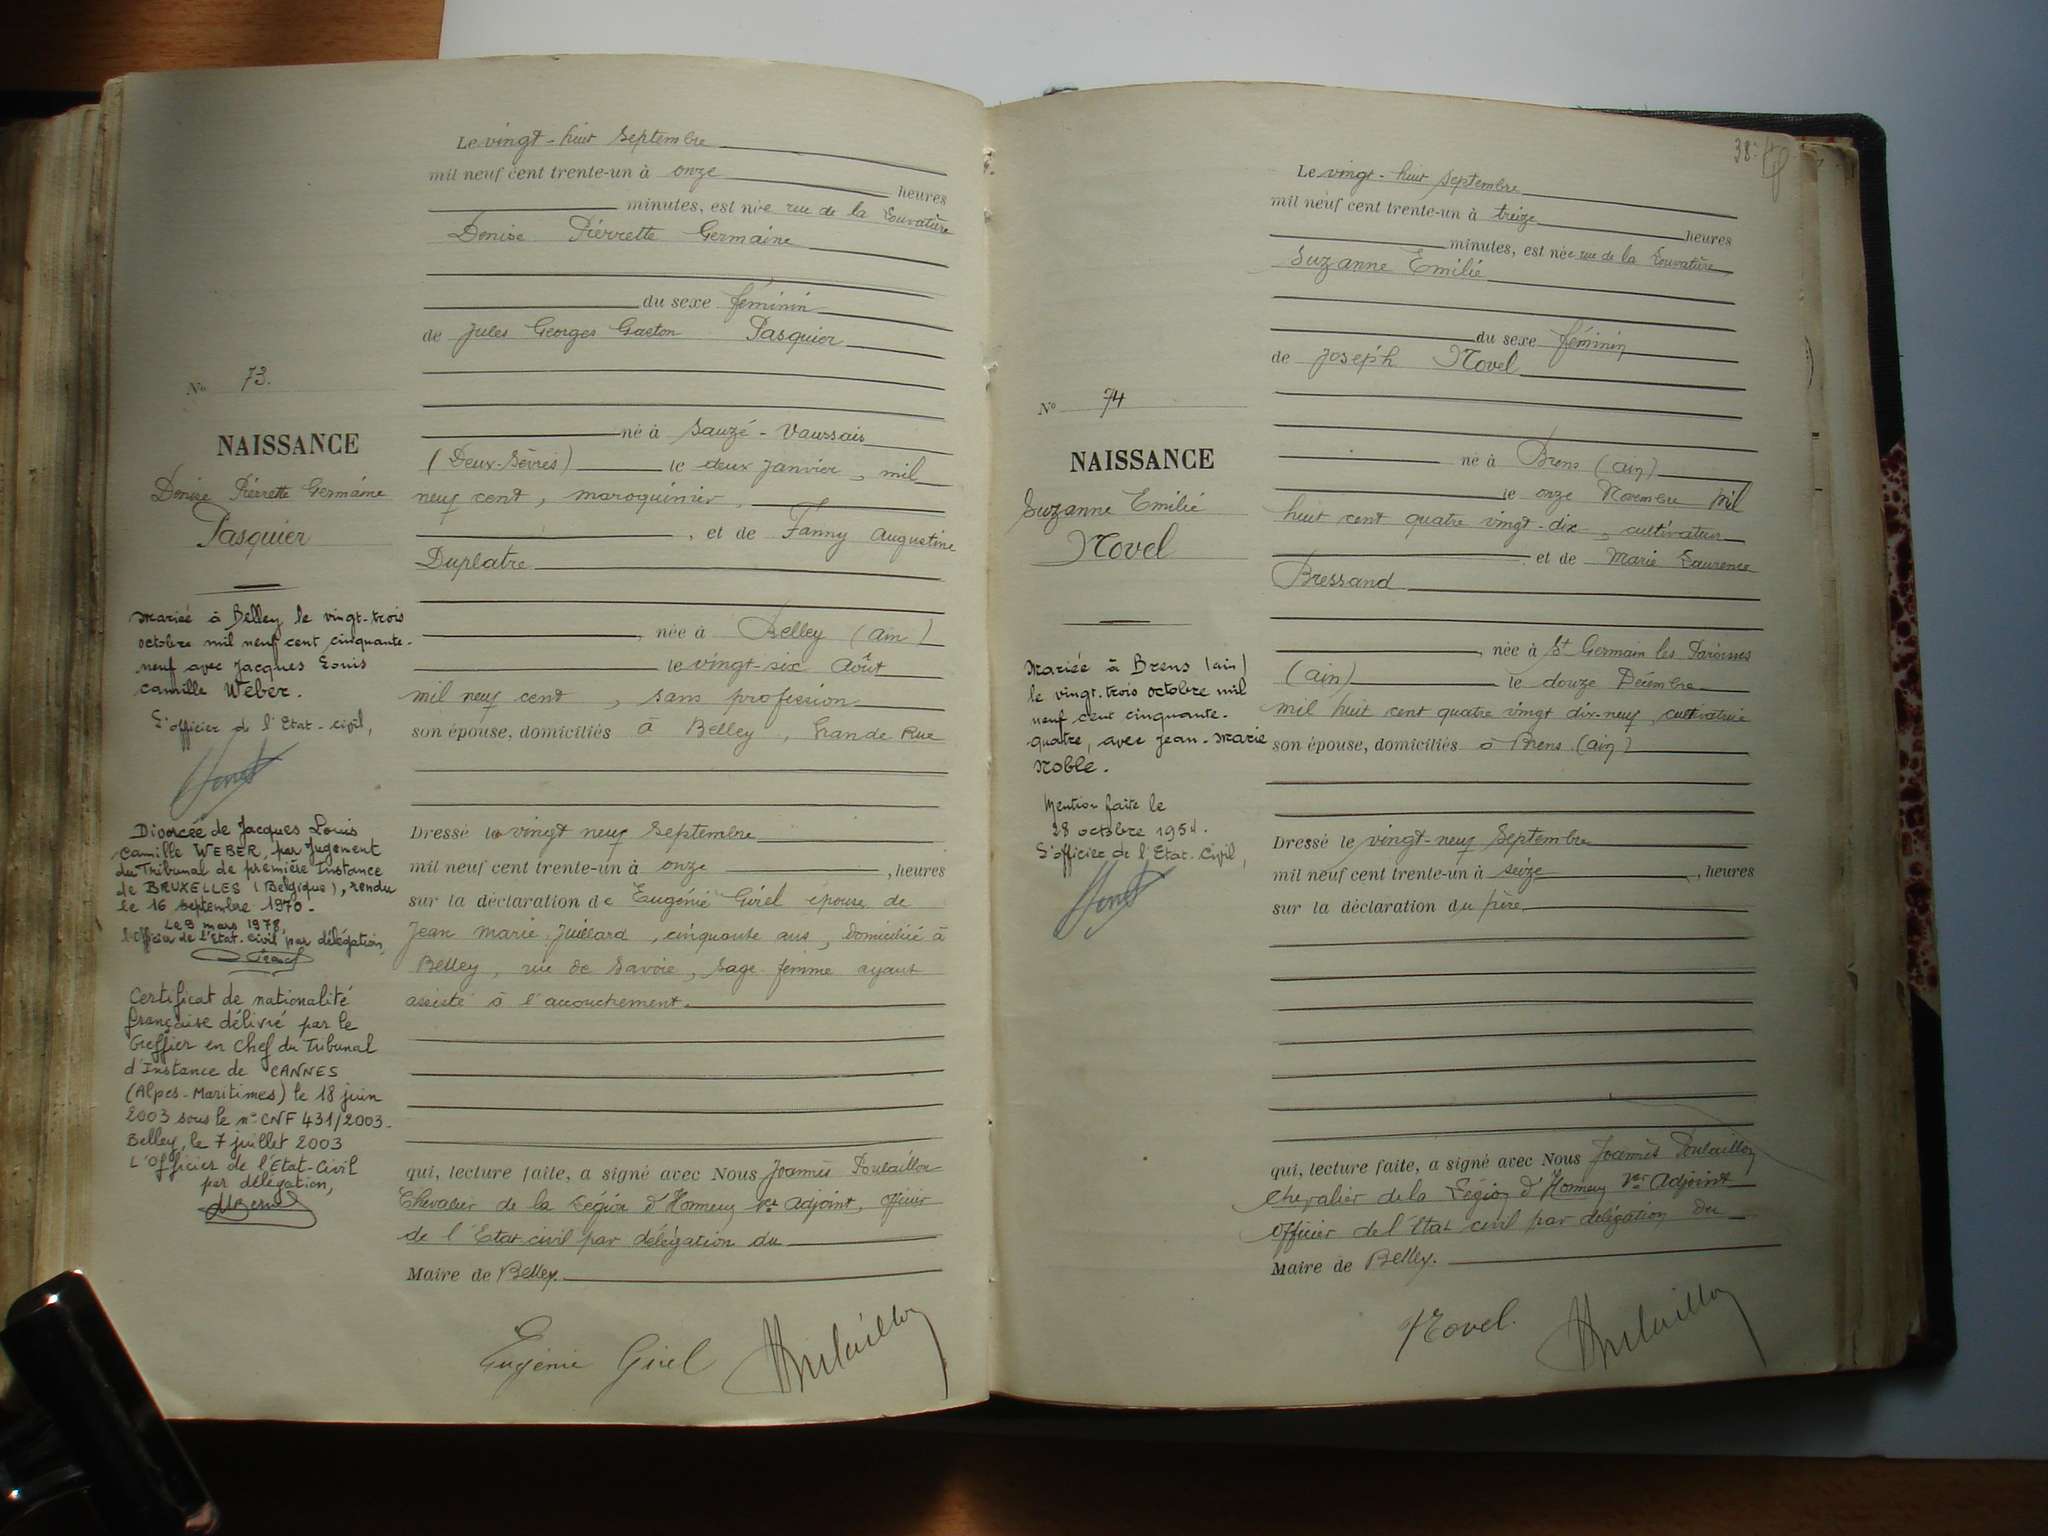 Le vingt-huit septembre
mil neuf cent trente-un à onze heures
minutes, est née rue de la Louvatière
Denise Pierrette Germaine
du sexe féminin
de Jules Georges Gaeton Pasquier
No 73.
NAISSANCE
Denise Pierrette Germaine
Pasquier
né à Sauzé-Vaussais
(Deux-Sèvres) le deux Janvier, mil
neuf cent, maroquinier,
, et de Fanny Augustine
Duplatre
, née à Belley (ain)
le vingt-six Août
mil neuf cent, sans profession
son épouse, domiciliés à Belley, Grande Rue
Mariée à Belley le vingt-trois
octobre mil neuf cent cinquante-
neuf avec Jacques Louis
Camille Weber.
L'officier de l'Etat-civil,
Divorcée de Jacques Louis
Camille WEBER, par Jugement
du Tribunal de première Instance
de BRUXELLES (Belgique), rendu
le 16 septembre 1970-
Le 9 mars 1978,
l'Officier de l'Etat-Civil par délégation,
Certificat de nationalité
française délivré par le
Greffier en Chef du Tribunal
d'Instance de CANNES
(Alpes-Maritimes) le 18 juin
2003 sous le n° CNF 431/2003.
Belley, le 7 juillet 2003
L'Officier de l'Etat-Civil
par délégation,
Dressé le vingt neuf septembre
mil neuf cent trente-un à onze, heures
sur la déclaration de Eugénie Girel épouse de
Jean Marie Juillard, cinquante ans, domiciliée à
Belley, rue de Savoie, sage-femme ayant
assisté à l'accouchement.
qui, lecture faite, a signé avec Nous Joannès Poulaillon
Chevalier de la Légion d'Honneur 1er Adjoint, officier
de l'Etat-civil par délégation du
Maire de Belley.
Eugénie Girel
Poulaillon
38
Le vingt-huit septembre
mil neuf cent trente-un à treize heures
minutes, est née rue de la Louvatière
Suzanne Emilie
du sexe féminin
de Joseph Novel
No 74
NAISSANCE
Suzanne Emilie
Novel
né à Brens (ain)
le onze Novembre mil
huit cent quatre vingt-dix, cultivateur
et de Marie Laurence
Bressand
, née à St Germain les Paroisses
(ain) le douze Décembre
mil huit cent quatre vingt dix-neuf, cultivatrice
son épouse, domiciliés à Brens (ain)
Mariée à Brens (ain)
le vingt-trois octobre mil
neuf cent cinquante-
quatre, avec Jean-Marie
Noble.
Mention faite le
28 octobre 1954.
L'officier de l'Etat-Civil,
Dressé le vingt-neuf septembre
mil neuf cent trente-un à seize, heures
sur la déclaration du père
qui, lecture faite, a signé avec Nous Joannès Poulaillon
Chevalier de la Légion d'Honneur 1er Adjoint
Officier de l'Etat civil par délégation du
Maire de Belley.
Novel.
Poulaillon